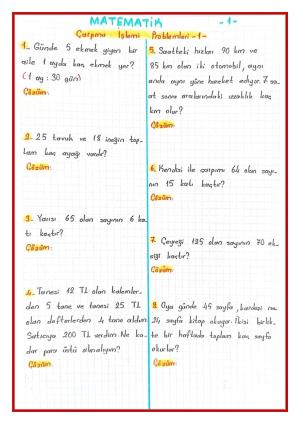 MATEMATİK -1-
Çarpma İşlemi Problemleri -1-
1- Günde 5 ekmek yiyen bir
aile 1 ayda kaç ekmek yer?
(1 ay: 30 gün)
Çözüm:
2- 25 tavuk ve 18 ineğin top-
lam kaç ayağı vardır?
Çözüm:
3- Yarısı 65 olan sayının 6 ka-
tı kaçtır?
Çözüm:
4- Tanesi 12 TL olan kalemler-
den 5 tane ve tanesi 25 TL
olan defterlerden 4 tane aldım.
Satıcıya 200 TL verdim. Ne ka-
dar para üstü almalıyım?
Çözüm:
5- Saatteki hızları 90 km ve
85 km olan iki otomobil, aynı
anda aynı yöne hareket ediyor. 7 sa-
at sonra aralarındaki uzaklık kaç
km olur?
Çözüm:
6- Kendisi ile çarpımı 64 olan sayı-
nın 15 katı kaçtır?
Çözüm:
7- Çeyreği 125 olan sayının 70 ek-
siği kaçtır?
Çözüm:
8- Oya günde 45 sayfa, kardeşi ise
34 sayfa kitap okuyor. İkisi birlik-
te bir haftada toplam kaç sayfa
okurlar?
Çözüm: